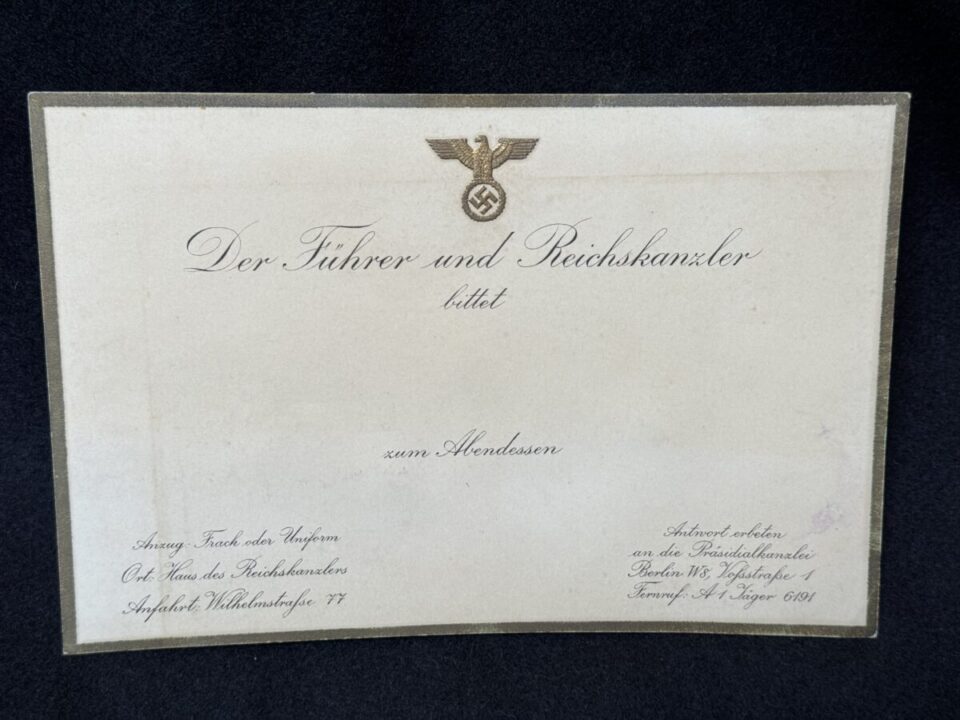 Der Führer und Reichskanzler
bittet
zum Abendessen
Anzug: Frack oder Uniform
Ort: Haus des Reichskanzlers
Anfahrt: Wilhelmstraße 77
Antwort erbeten
an die Präsidialkanzlei
Berlin W8, Voßstraße 1
Fernruf: A 1 Jäger 6191